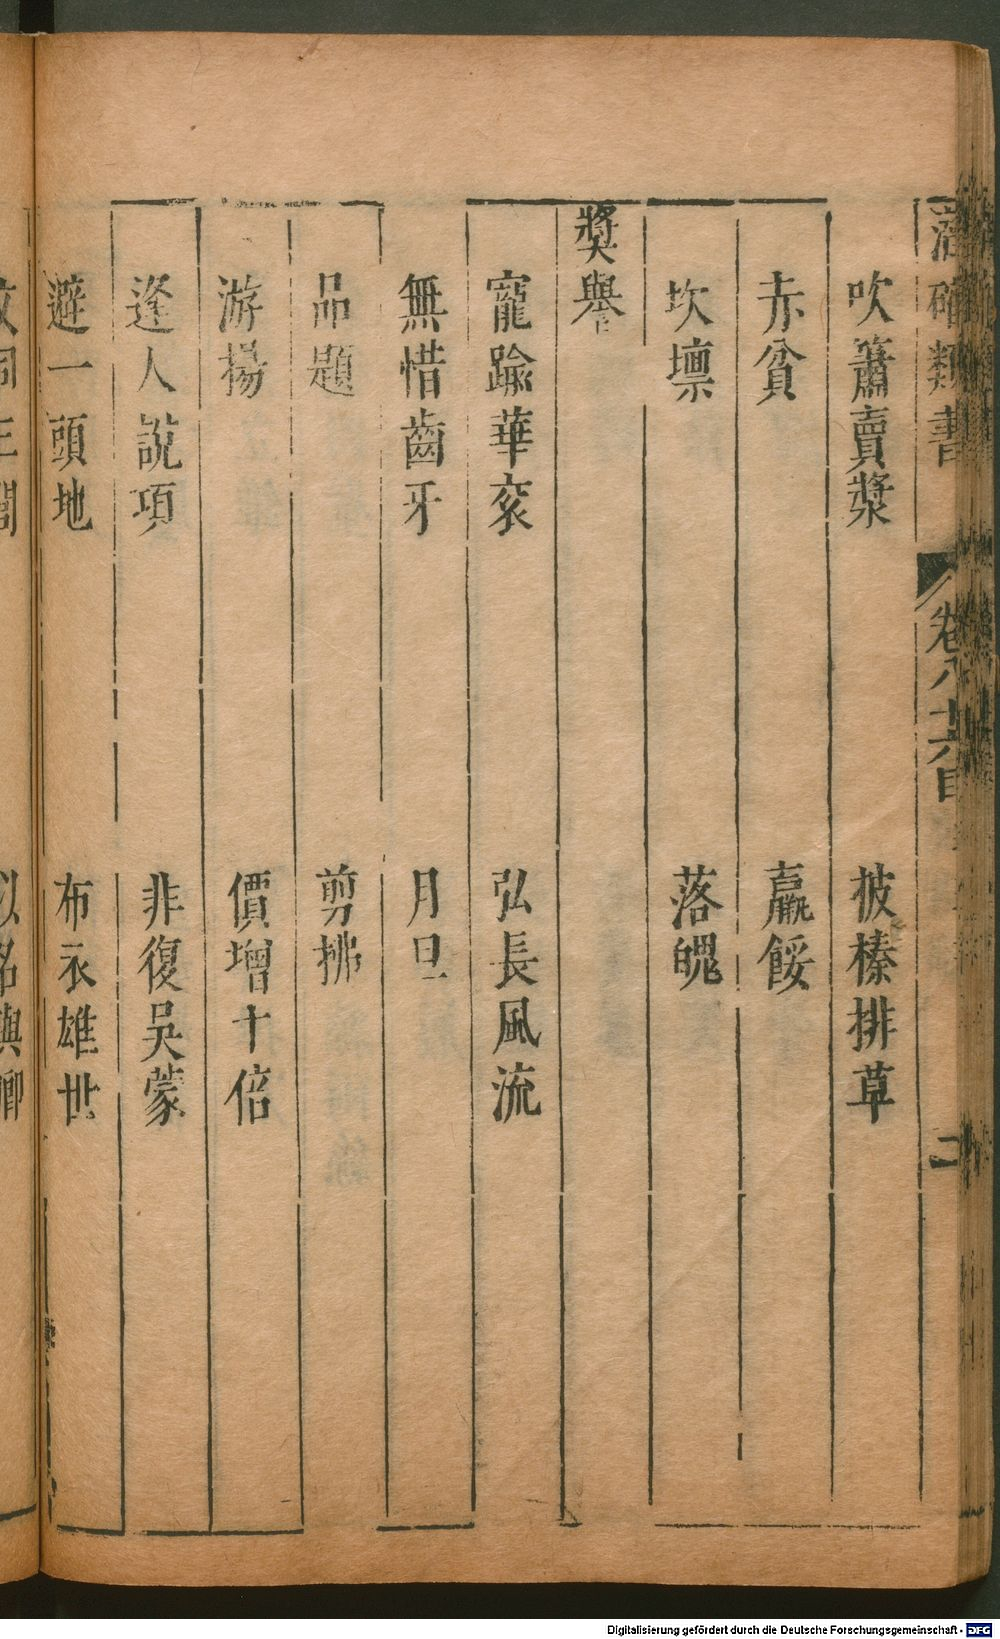 潛確類書 卷八十六目 二
吹簫賣漿 披榛排草
赤貧 羸餒
坎壈 落魄
獎譽
寵踰華衮 弘長風流
無惜齒牙 月旦
品題 剪拂
游揚 價增十倍
逢人說項 非復吳蒙
避一頭地 布衣雄世
以名與卿
Digitalisierung gefördert durch die Deutsche Forschungsgemeinschaft - DFG